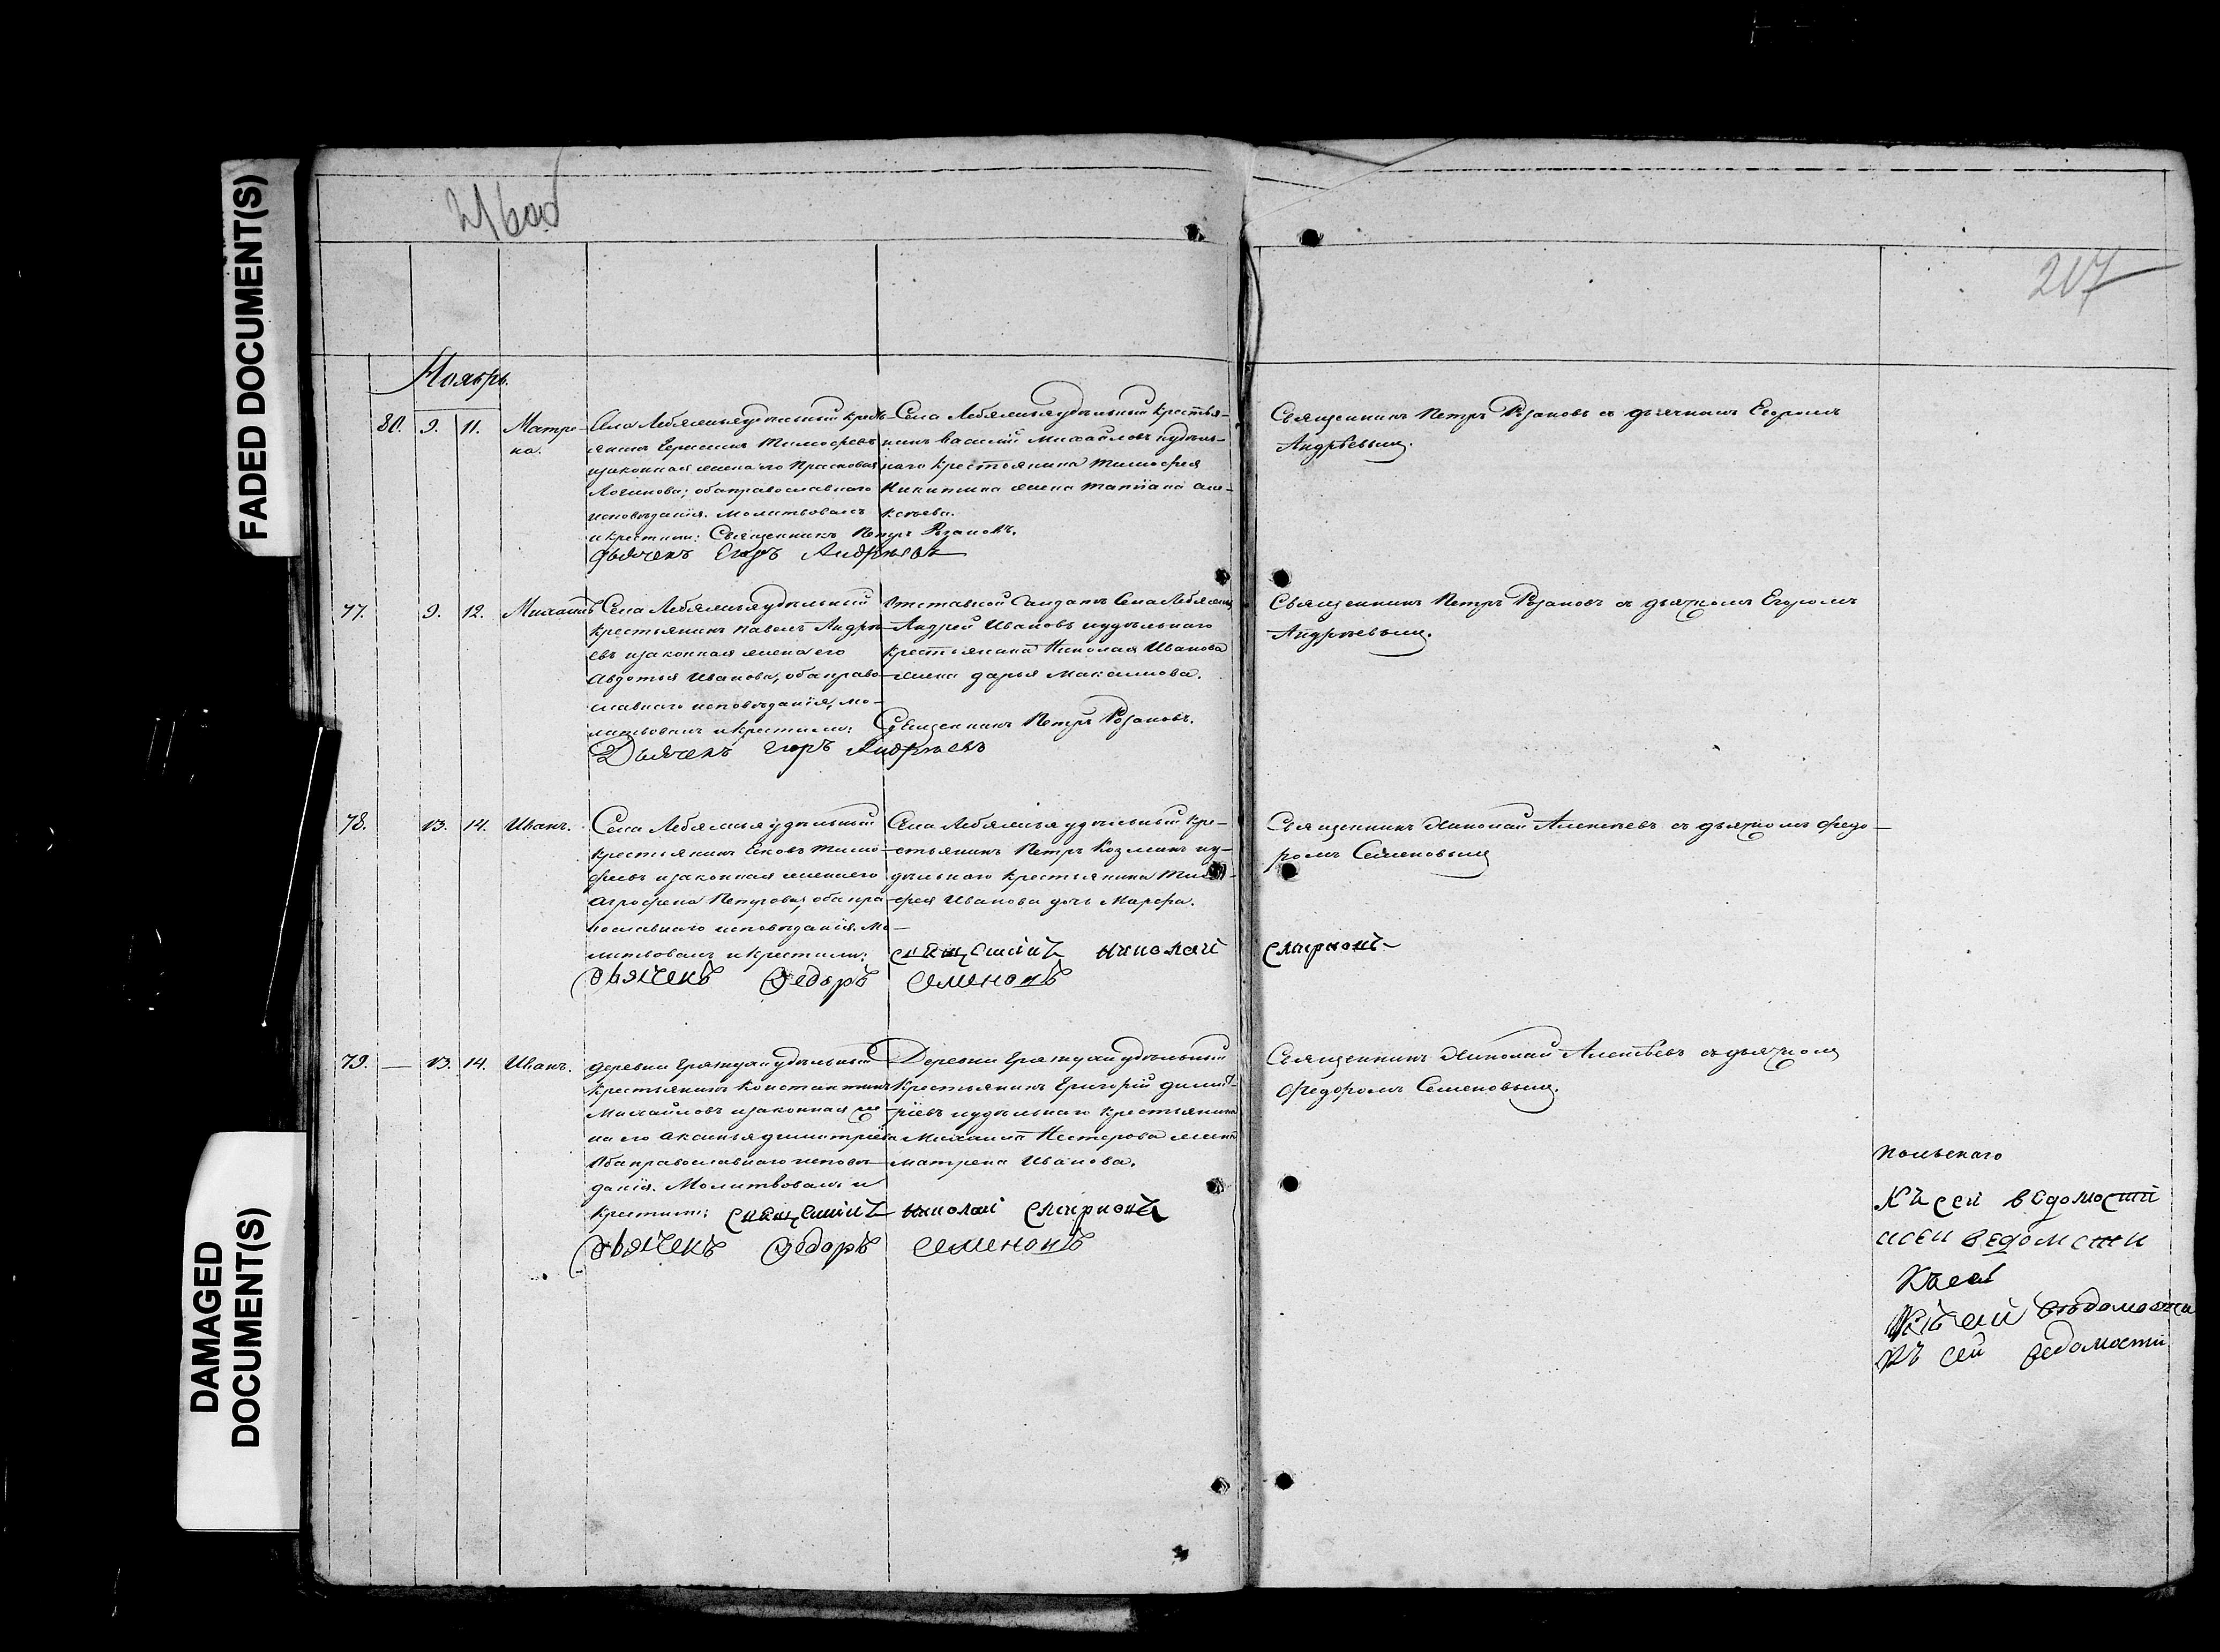 FADED DOCUMENT(S)
DAMAGED
DOCUMENT(S)
217
Ноябрь.
80. 9. 11. Матре-
на.
Села Лебяжья удѣльный кресть-
янинъ Герасимъ Тимофѣевъ
и законная жена его Прасковья
Логинова; оба православнаго
исповѣданія. Молитвовалъ
и крестили: Священникъ Петръ Розановъ.
Дьячекъ Егоръ Андрѣевъ
Села Лебяжья удѣльный крестья-
нинъ Василій Михайловъ и удѣль-
наго крестьянина Тимофея
Никитина жена Татіана Але-
ксѣева.
Священникъ Петръ Розановъ съ дьячкомъ Егоромъ
Андрѣевымъ.
77. 9. 12. Михаилъ
Села Лебяжья удѣльный
крестьянинъ Павелъ Андрѣ-
евъ и законная жена его
Авдотья Иванова, оба право-
славнаго исповѣданія, мо-
литвовалъ и крестили: Священникъ Петръ Розановъ.
Дьячекъ Егоръ Андрѣевъ
Отставной Солдатъ Села Лебяжья
Андрей Ивановъ и удѣльнаго
крестьянина Николая Иванова
жена Дарья Максимова.
Священникъ Петръ Розановъ съ дьячкомъ Егоромъ
Андрѣевымъ.
78. 13. 14. Иванъ.
Села Лебяжья удѣльный
крестьянинъ Яковъ Тимо-
феевъ и законная жена его
Агрофена Петрова, оба пра-
вославнаго исповѣданія. Мо-
литвовалъ и крестили: Священникъ Николай Смирновъ
Дьячекъ Федоръ Семеновъ
Села Лебяжья удѣльный кре-
стьянинъ Петръ Козминъ и у-
дѣльнаго крестьянина Тимо-
фея Иванова дочь Марфа.
Священникъ Николай Алексѣевъ съ дьячкомъ Федо-
ромъ Семеновымъ
79. — 13. 14. Иванъ.
Деревни Грязнухи удѣльный
крестьянинъ Константинъ
Михайловъ и законная же-
на его Аксинья Димитріева
оба православнаго исповѣ-
данія. Молитвовалъ и
крестили: Священникъ Николай Смирновъ
Дьячекъ Федоръ Семеновъ
Деревни Грязнухи удѣльный
крестьянинъ Григорій Димит-
ріевъ и удѣльнаго крестьянина
Михаила Нестерова жена
Матрена Иванова.
Священникъ Николай Алексѣевъ съ дьячкомъ
Федоромъ Семеновымъ.
Къ сей ведомости
исей ведомсти
Къ сей
Къ сей вѣдомости
Къ сей ведомости